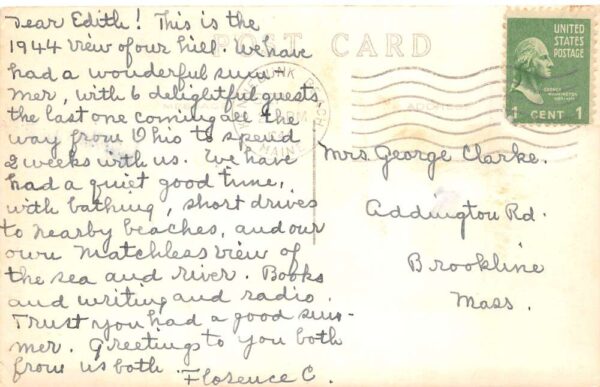 Dear Edith! This is the
1944 view of our hill. We have
had a wonderful sum-
mer, with 6 delightful guests
the last one coming all the
way from Ohio to spend
2 weeks with us. We have
had a quiet good time,
with bathing, short drives
to nearby beaches, and our
own matchless view of
the sea and river. Books
and writing and radio.
Trust you had a good sum-
mer. Greetings to you both
from us both.
Florence C.
POST CARD
BEACH
MAINE
UNITED
STATES
POSTAGE
GEORGE
WASHINGTON
1 CENT 1
Mrs. George Clarke.
Addington Rd.
Brookline
Mass.